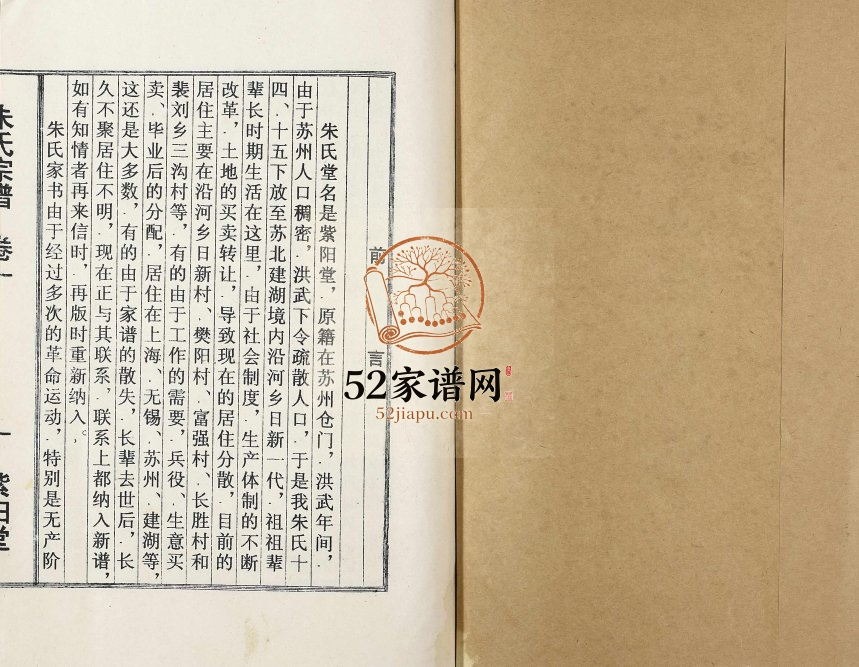 前言
朱氏堂名是紫阳堂，原籍在苏州仓门，洪武年间，
由于苏州人口稠密，洪武下令疏散人口，于是我朱氏十
四、十五下放至苏北建湖境内沿河乡日新一代，祖祖辈
辈长时期生活在这里，由于社会制度，生产体制的不断
改革，土地的买卖转让，导致现在的居住分散，目前的
居住主要在沿河乡日新村、樊阳村、富强村、长胜村和
裴刘乡三沟村等，有的由于工作的需要，兵役、生意买
卖、毕业后的分配，居住在上海、无锡、苏州、建湖等，
这还是大多数，有的由于家谱的散失，长辈去世后，长
久不聚居住不明，现在正与其联系，联系上都纳入新谱，
如有知情者再来信时，再版时重新纳入。
朱氏家书由于经过多次的革命运动，特别是无产阶
朱氏宗谱 卷一
一 紫阳堂
52家谱网
52jiapu.com